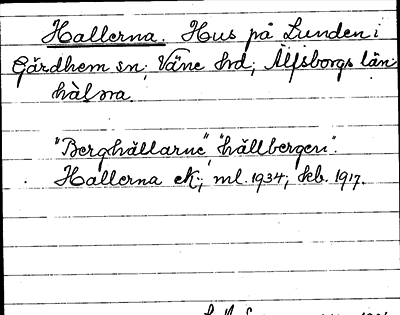 Hallerna. Hus på Lunden i
Gärdhem sn; Väne hd; Älfsborgs län.
"Berghällarne", "hällbergen".
Hallerna ek; ml. 1934; Feb. 1917.